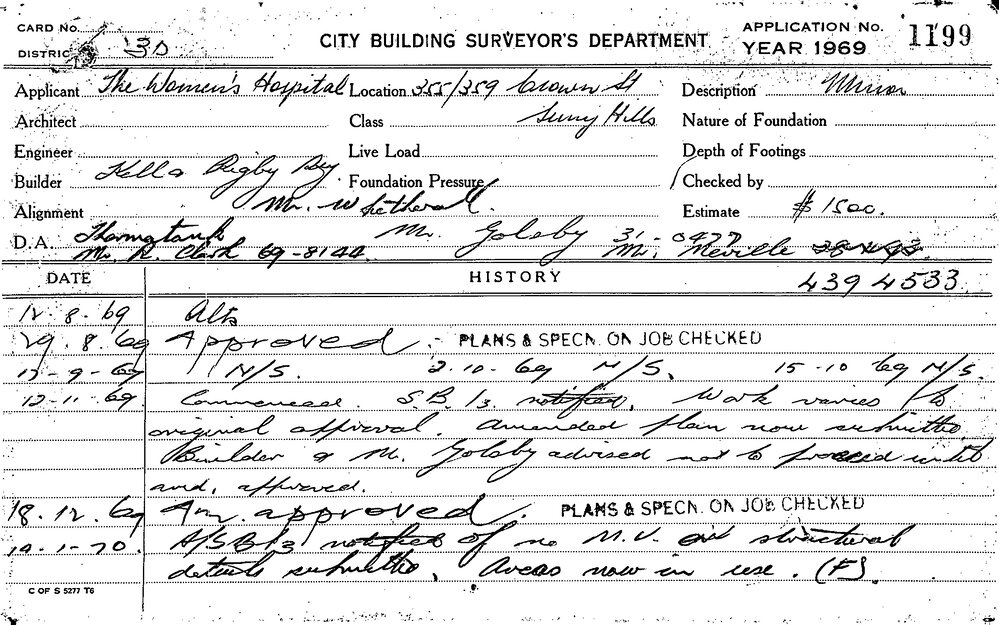 CARD No.
DISTRICT 30
CITY BUILDING SURVEYOR'S DEPARTMENT
APPLICATION No.
YEAR 1969
1199
Applicant The Women's Hospital Location 355/359 Crown St Description Minor
Architect Class Surry Hills Nature of Foundation
Engineer Live Load Depth of Footings
Builder Kell & Rigby Pty. Foundation Pressure Checked by
Alignment Mr. Wetherall. Estimate $1500.
D.A. Thermotank Mr. Golsby 31-0477
Mr. R. Clark 69-8144 Mr. Neville
DATE HISTORY 439 4533
12.8.69 Alts
29.8.69 Approved. PLANS & SPECN. ON JOB CHECKED
17-9-69 N/S. 2.10.69 N/S. 15-10 69 N/S.
12-11.69 Commenced. S.B. 1/3 notified. Work varies to
original approval. Amended plan now submitted
Builder & M. Golsby advised not to proceed until
amd. approved.
18.12.69 Am. approved. PLANS & SPECN. ON JOB CHECKED
19.1-70. A/SB 1/3 notified of no M.V. structural
details submitted. Areas now in use. (F).
C OF S 5277 T6